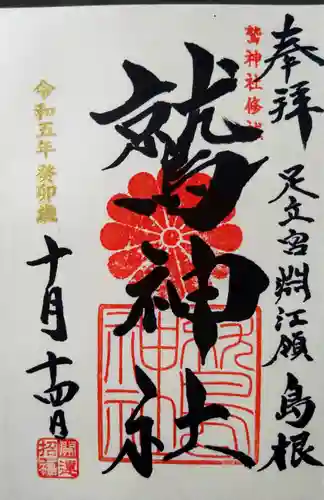 奉拝
足立宮淵江領島根
鷲神社修祓
鷲神社
令和五年癸卯歳
十月十四日
開運
招福